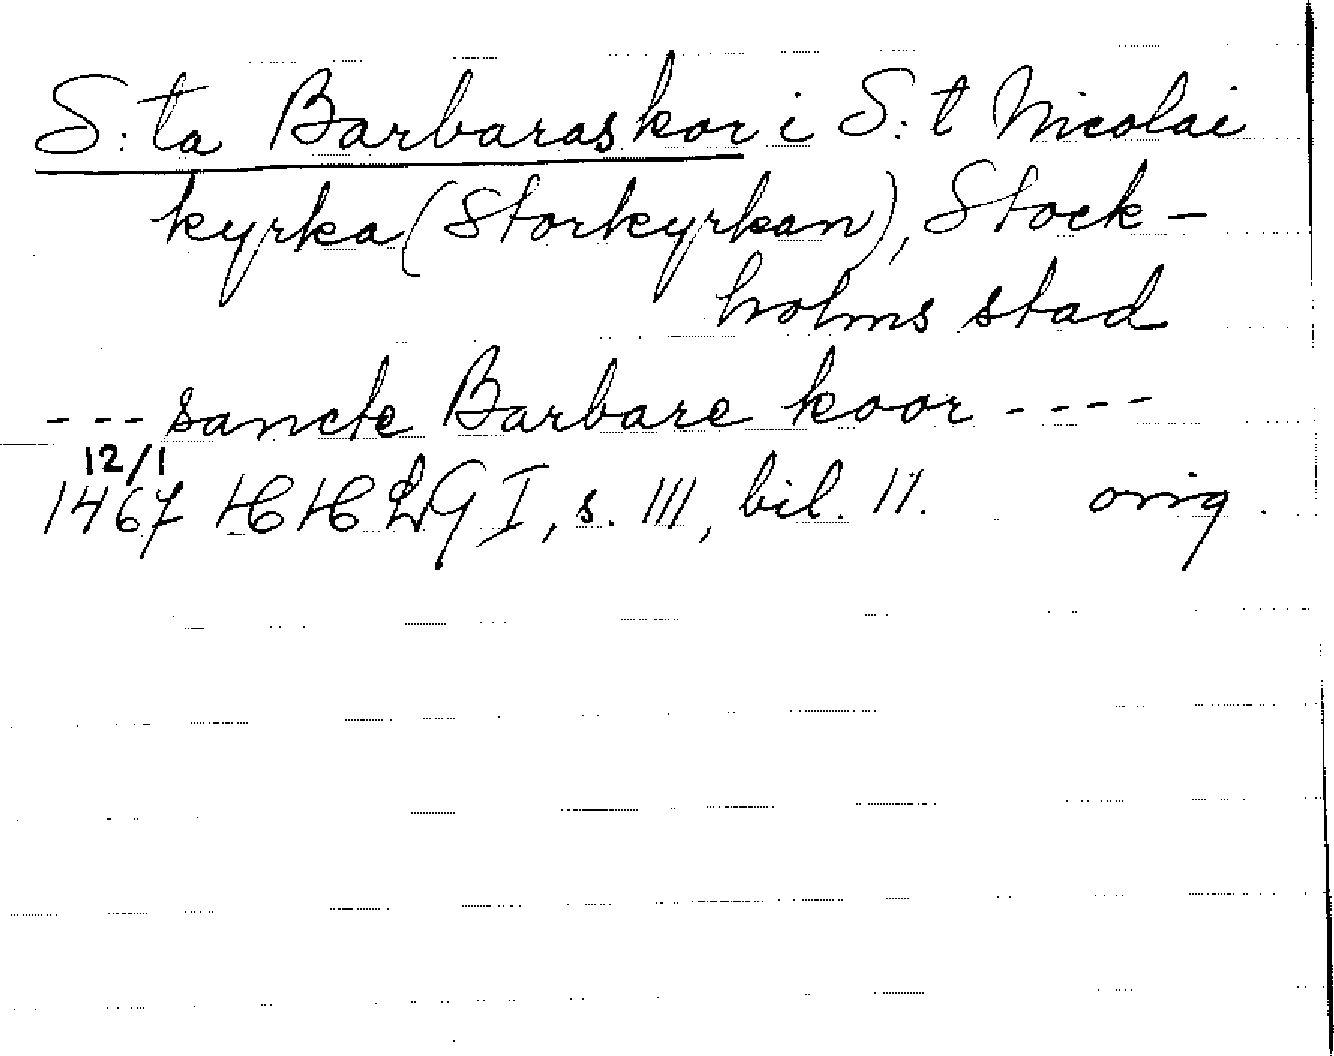 S:ta Barbaraskor i S:t Nicolai
kyrka (Storkyrkan), Stock-
holms stad
--- sancte Barbare koor ----
12/1
1467 HH LG I, s. 111, bil. 11. orig.